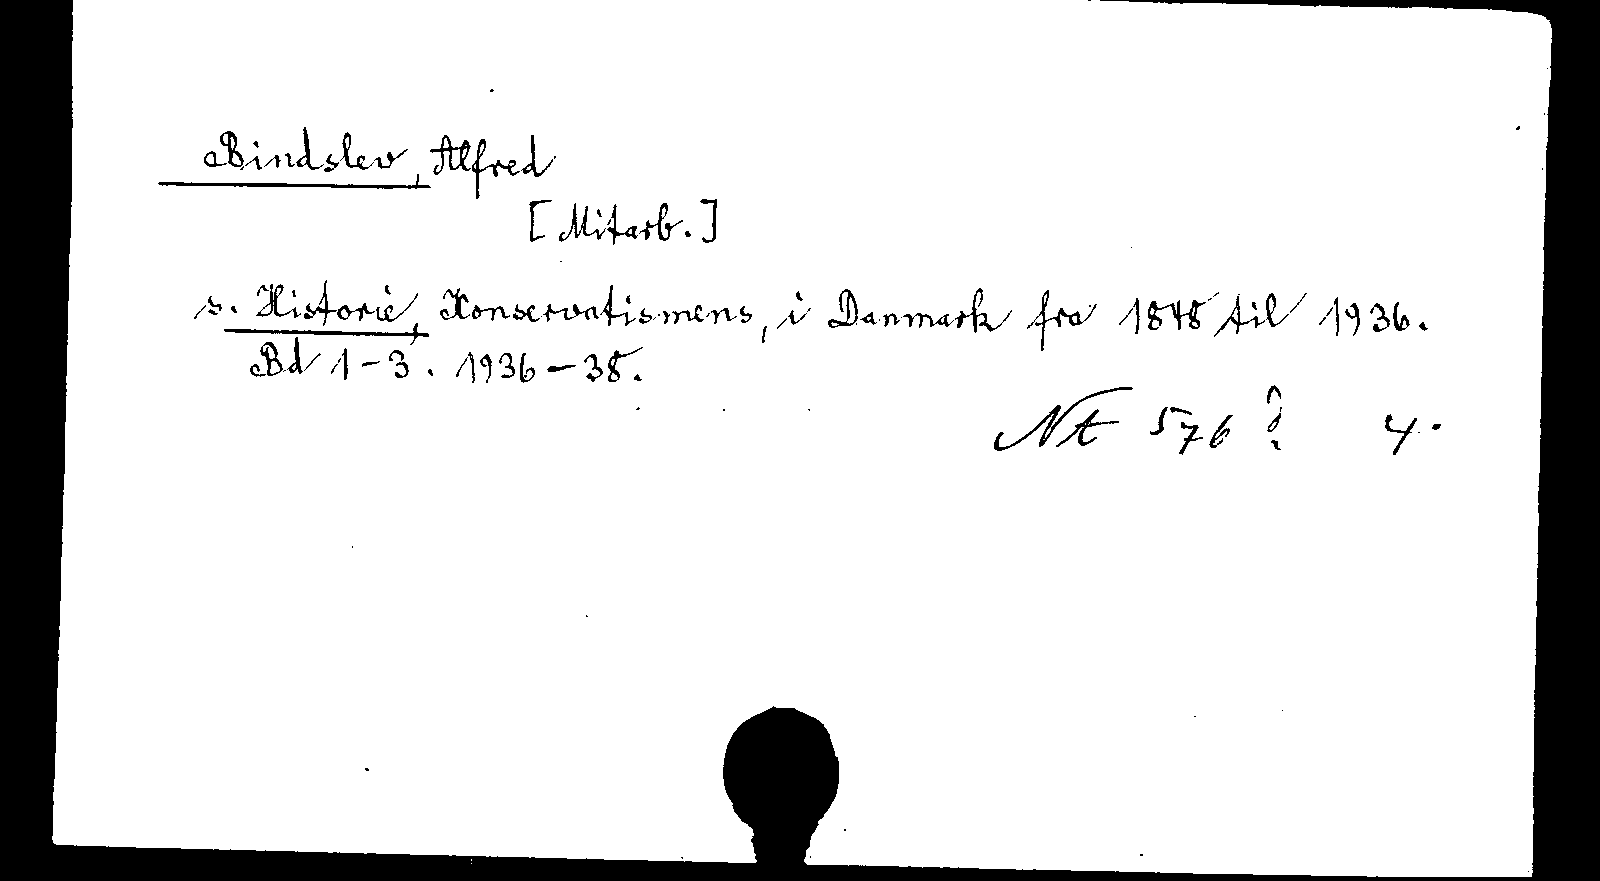 Bindslev, Alfred
[Mitarb.]
s. Historie, Konservatismens, i Danmark fra 1848 til 1936.
Bd 1-3. 1936-38.
Nt 576 8 4.